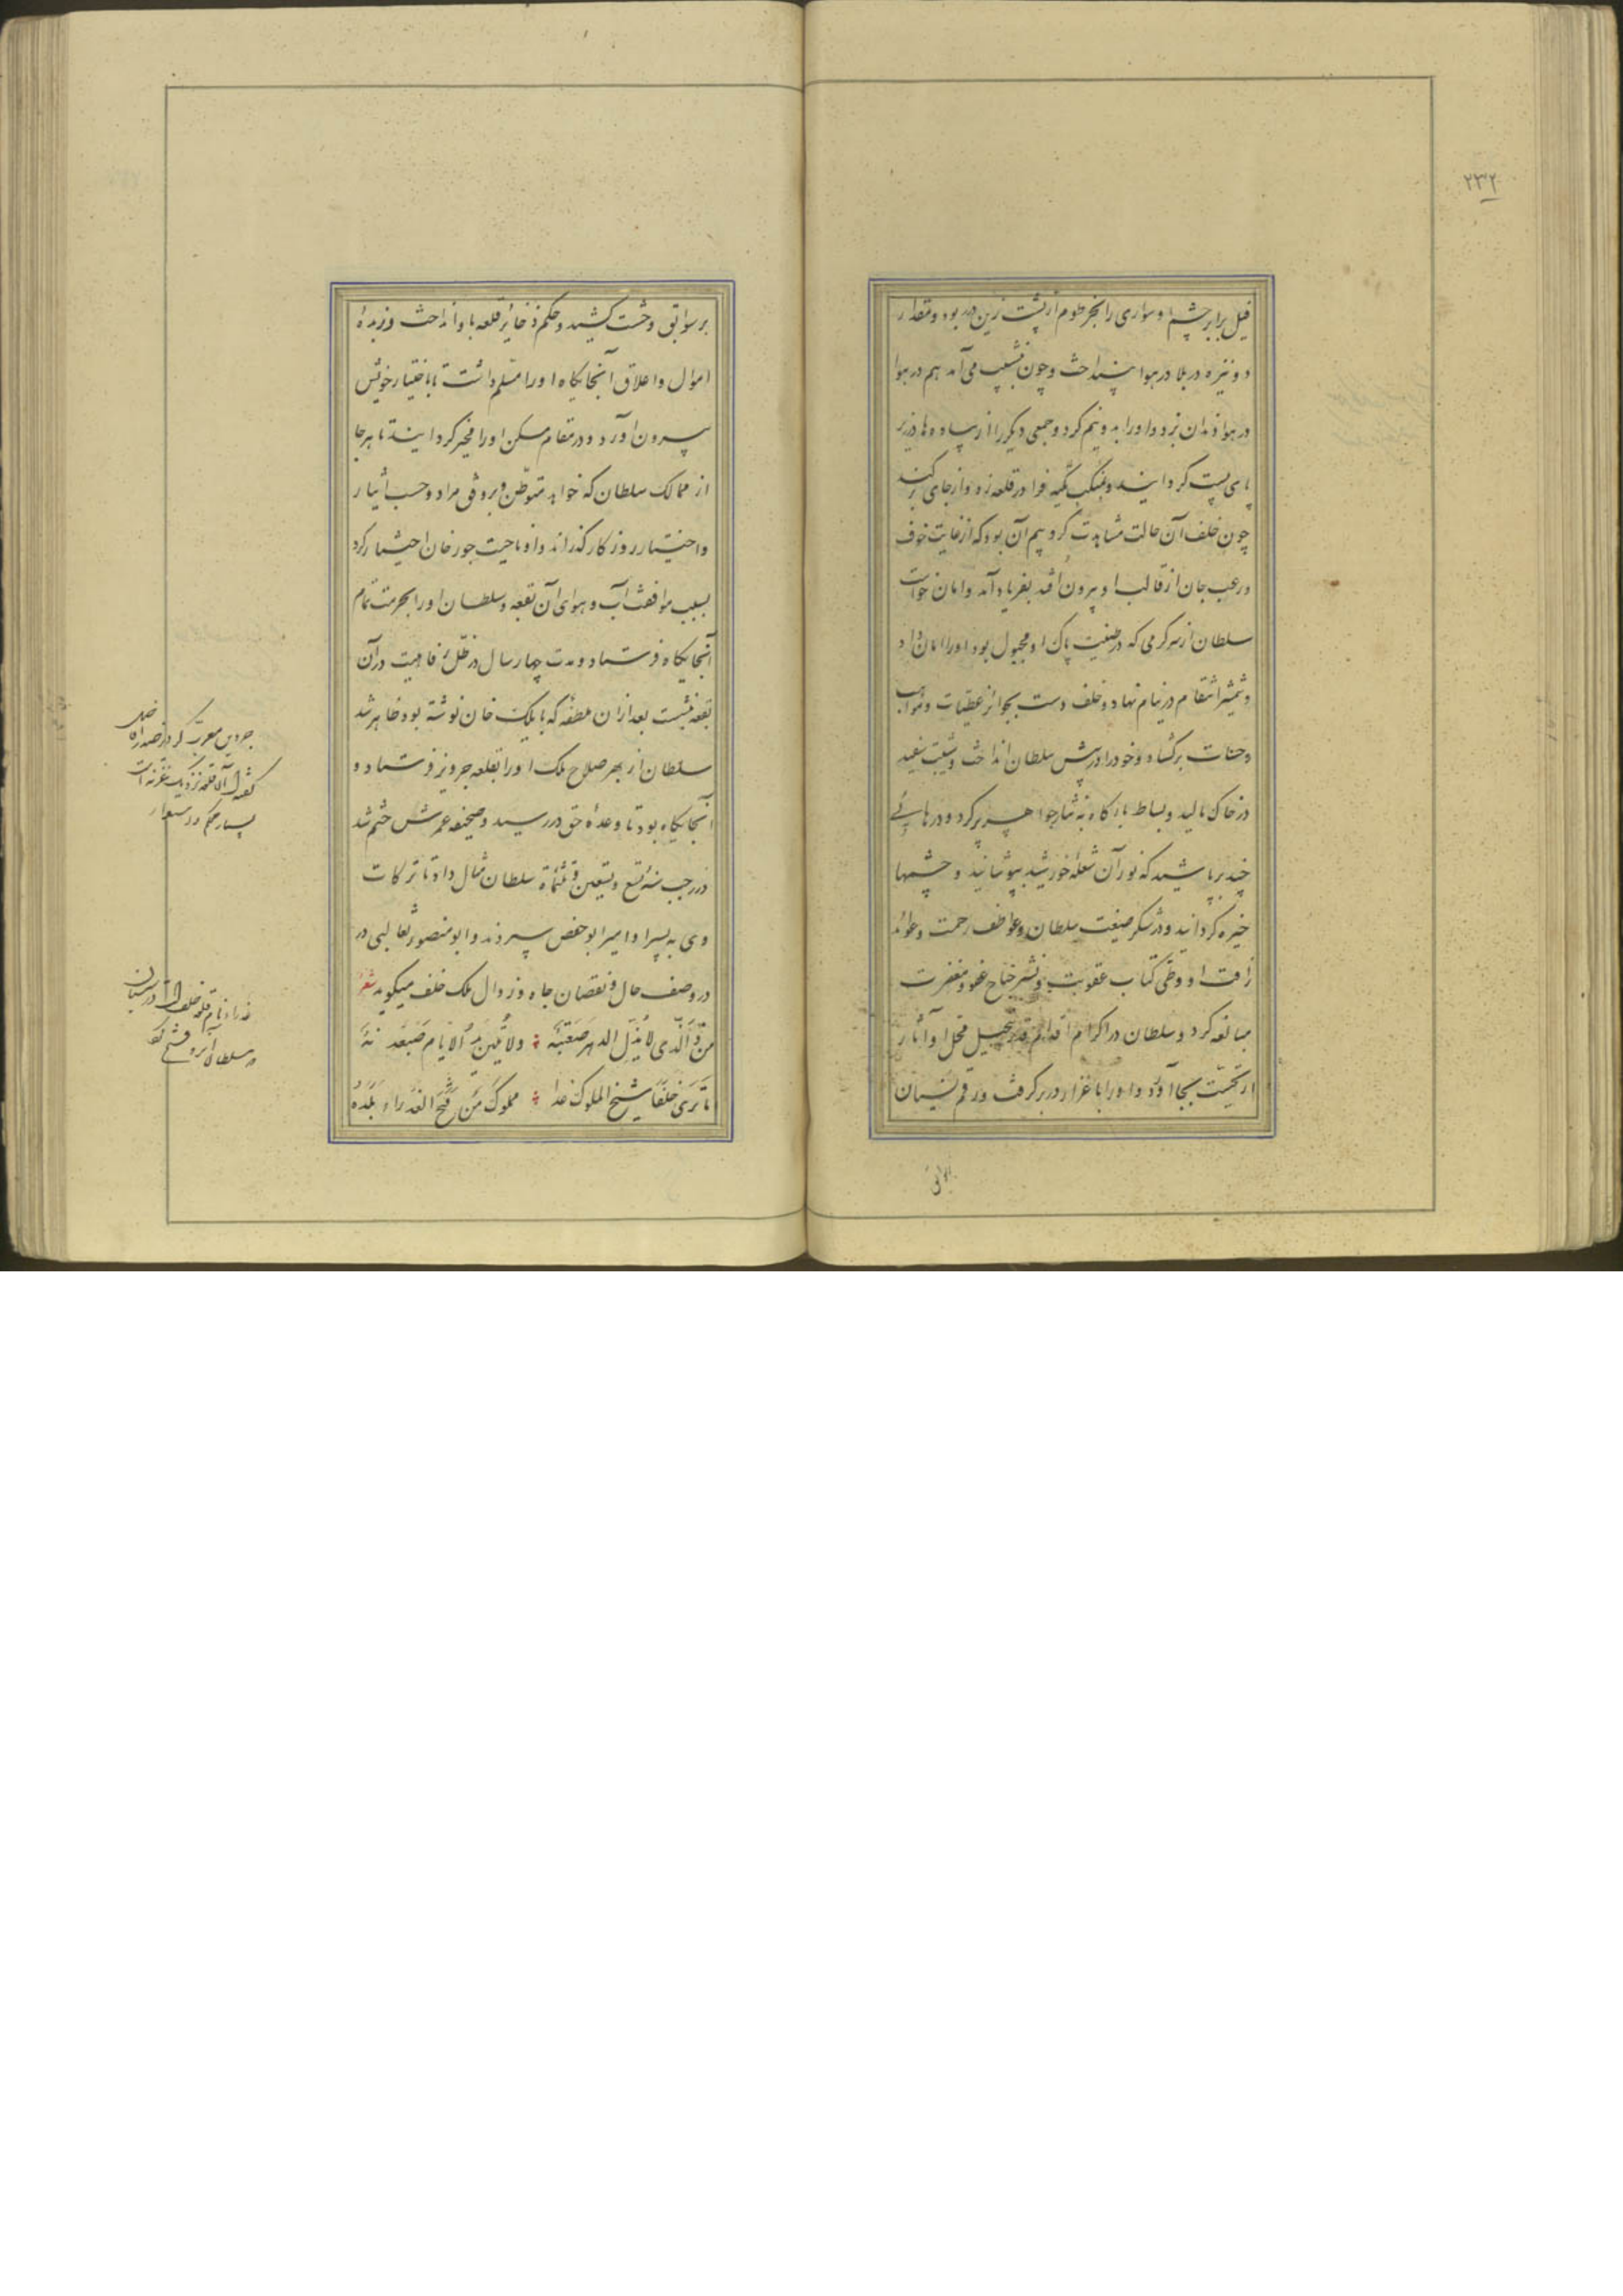 ۲۳۲
فیل برابر چشم او سواری را بخرطوم از پشت زین در ربود و مقدار
دو نیزه در بلا در هوا بینداخت و چون بنشیب می‌آمد هم در هوا
در هوا دندان بزد و او را بدونیم کرد و جمعی دیگر را از پیاده‌ها در زیر
پای پست کردانید و بمنکب تکیه فرا در قلعه زد و از جای برکند
چون خلف آن حالت مشاهدت کرد بیم آن بود که از غایت خوف
و رعب جان از قالب او بیرون افتد بفریاد آمد و امان خواست
سلطان از سر کرمی که در طینت پاک او مجبول بود او را امان داد
و شمشیر انتقام در نیام نهاد و خلف دست بجوائز عطیات و مواهب
و حنات برکشاد و خود را در پیش سلطان انداخت و شیبت سفید
در خاک مالید و بساط بارکاه به نثار جواهر پر کرد و درهائی
چند برپاشید که نور آن شعله خورشید بپوشانید و چشمها
خیره کردانید و در شکر صنیعت سلطان و عواطف رحمت و عوائد
رافت او و طی کتاب عقوبت و نشر جناح عفو و مغفرت
مبالغه کرد و سلطان در اکرام اقدام قدر تبجیل محل او آثار
اریحیت بجا آورد و او را باعزاز در بر کرفت و رقم نسیان
بر سوابق وحشت کشید و حکم ذخائر قلعه باو انداخت و زبده
اموال و اعلاق آنجایکاه او را مسلم داشت تا باختیار خویش
بیرون آورد و در مقام مسکن او را مخیر کردانید تا بهر جا
از ممالک سلطان که خواهد متوطن و بر وفق مراد و حسب ایثار
و اختیار روزکار کذراند و او ناحیت جوزجان اختیار کرد
بسبب موافقت آب و هوای آن بقعه و سلطان او را بحرمت تمام
آنجایکاه فرستاد و مدت چهار سال در ظل رفاهیت در آن
بقعه بنشست بعد از آن ملطفه که بایلک خان نوشته بود ظاهر شد
سلطان از بهر صلاح ملک او را بقلعه جرویز فرستاد و
آنجایکاه بود تا وعده حق در رسید و صحیفه عمرش ختم شد
در رجب سنه تسع و تسعین و ثلثمأة سلطان مثال داد تا ترکات
وی به پسر او امیر ابوحفص سپردند و ابو منصور ثعالبی در
در وصف حال و نقصان جاه و زوال ملک خلف میکوید شعر
مَنْ ذَا الَّذی لا یُذِلّ الدهر صَعْبَتَه ولا تُلَیِّنُ الایّام صَعْدَتَهُ
اما تَری خَلَفاً شیخ الملوک غدا مملوکَ مَنْ فَتَحَ العَذراء بَلْدَهُ
جرویز معرب کردیز
بسیار محکم و دشوار
عذراء نام قلعه خلف در سیستان